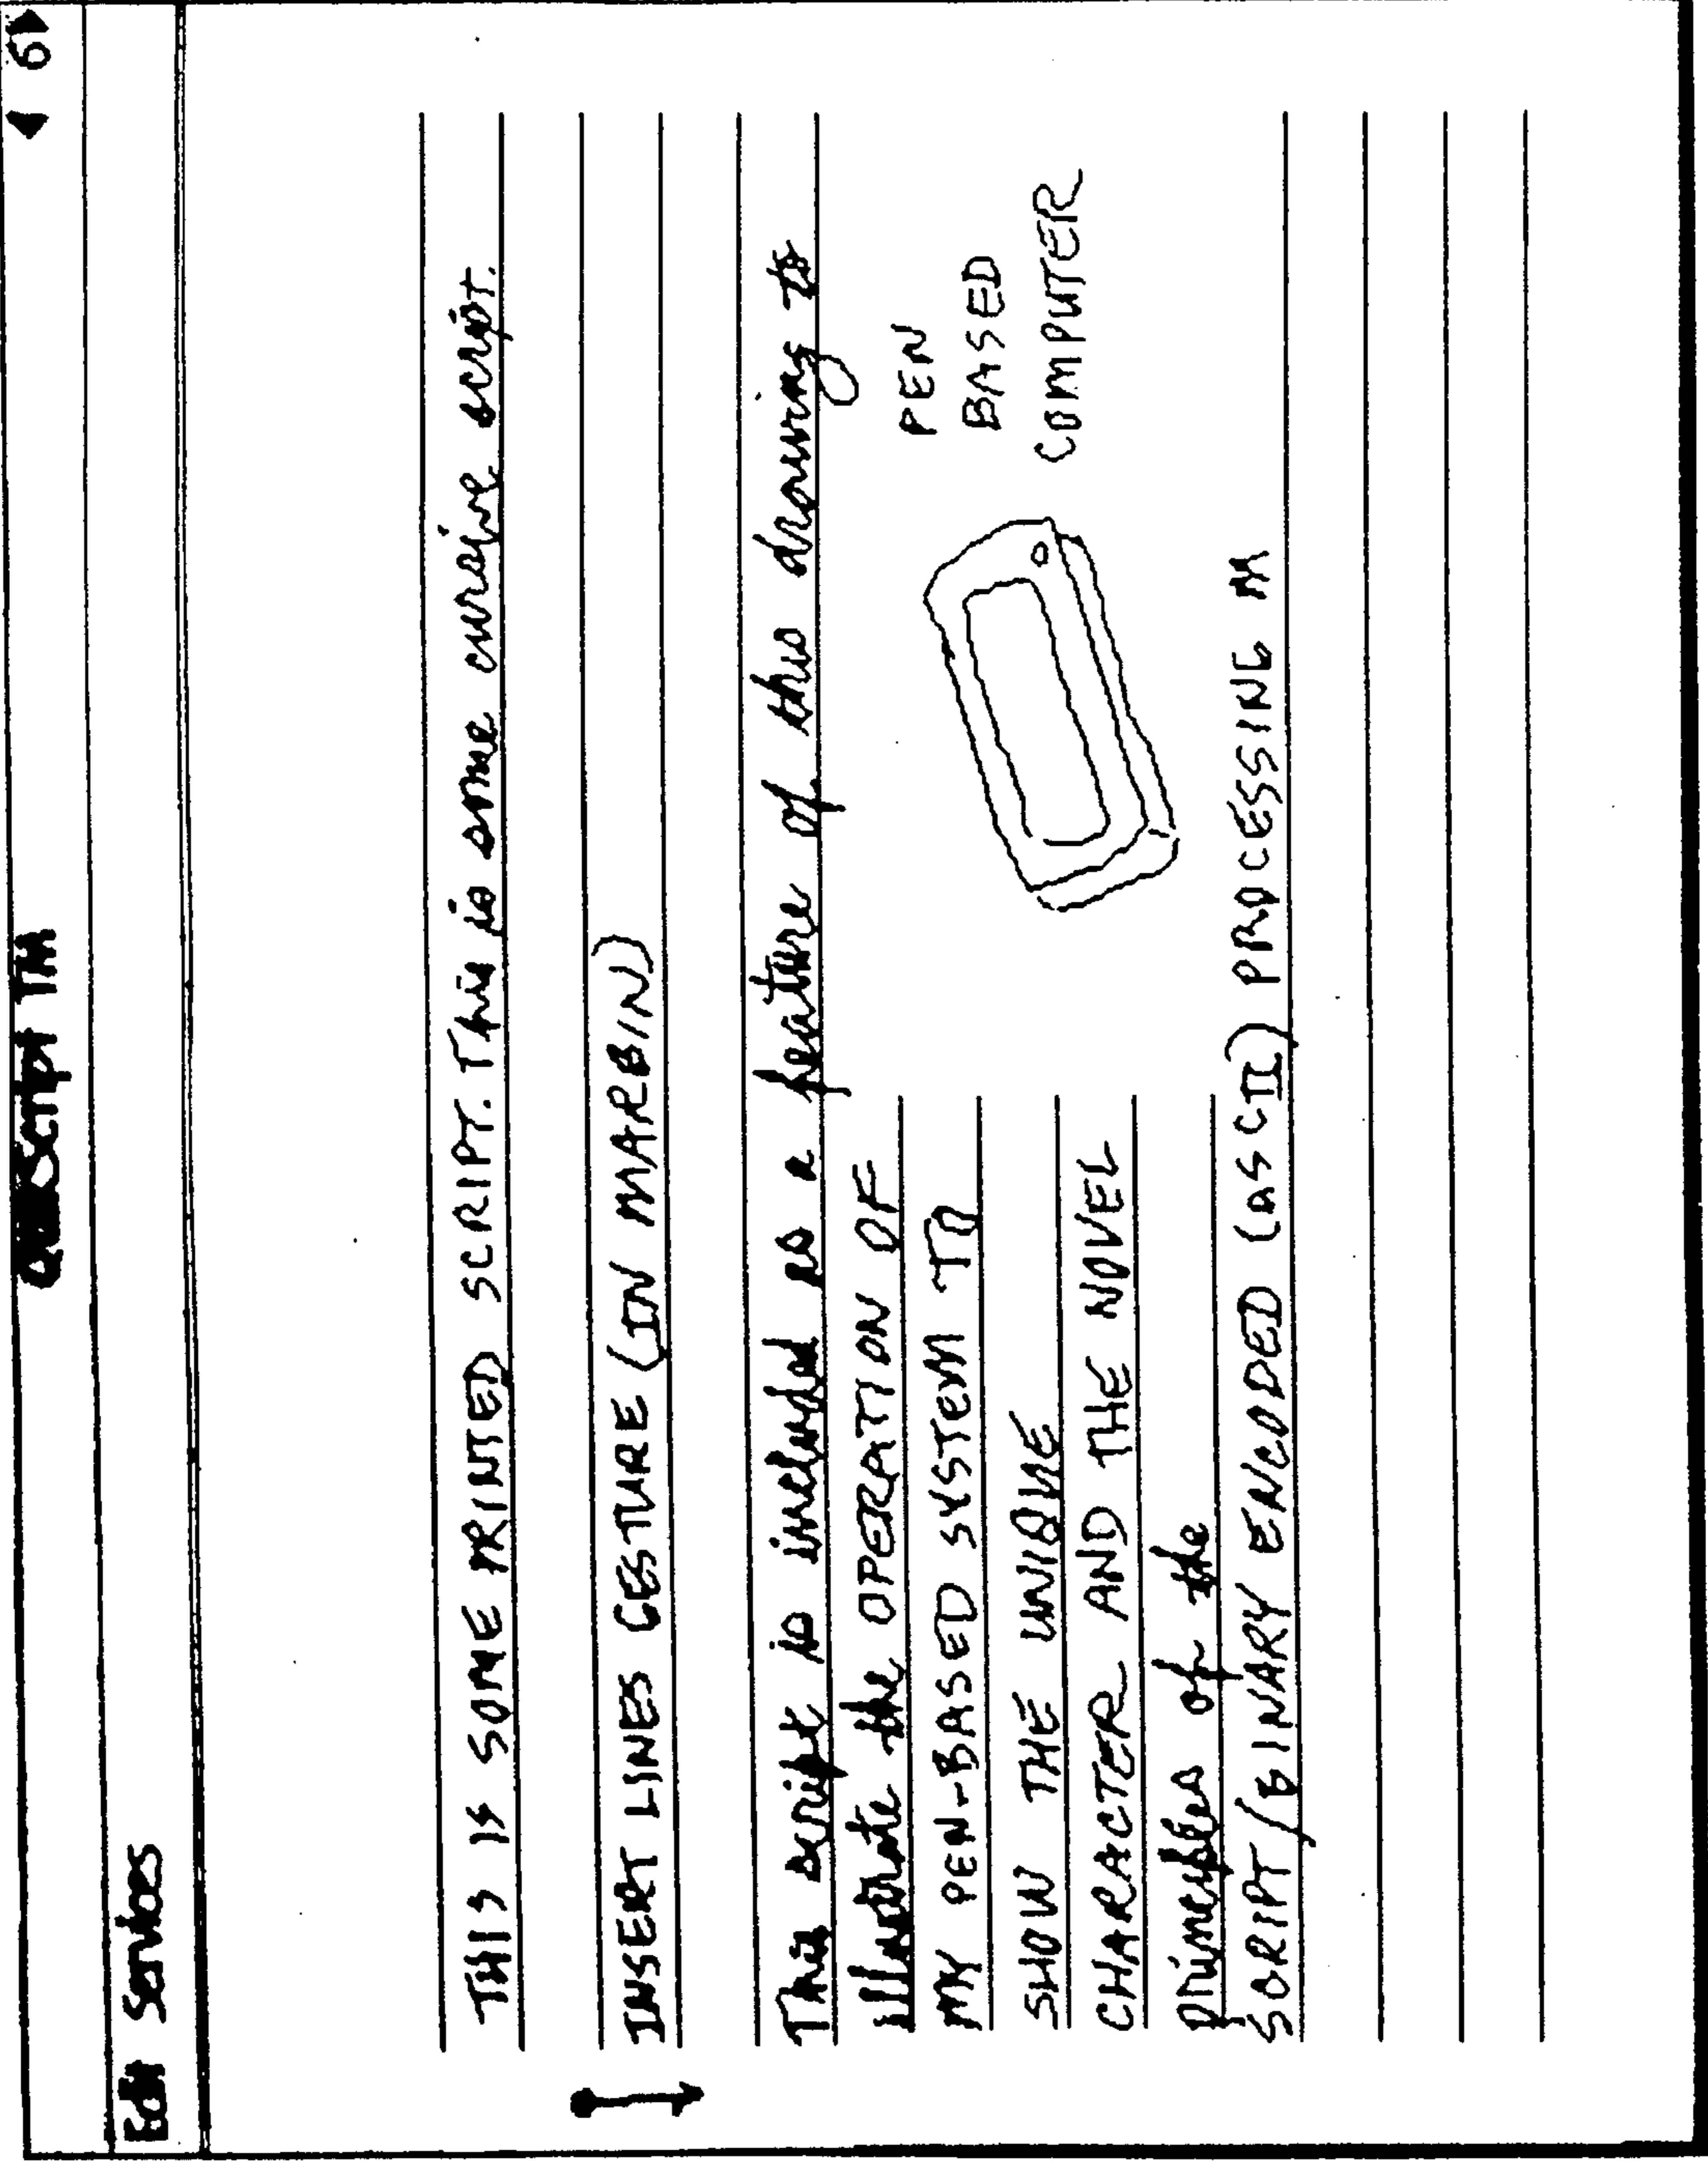 Script TM
◀ 61▶
Edit Services
THIS IS SOME PRINTED SCRIPT. This is some cursive script.
INSERT LINES GESTURE (IN MARGIN)
This script is included as a feature of this drawing to
illustrate the OPERATION OF
MY PEN-BASED SYSTEM TO
SHOW THE UNIQUE
CHARACTER AND THE NOVEL
principles of the
SCRIPT/BINARY ENCODED (ASCII) PROCESSING M
PEN
BASED
COMPUTER